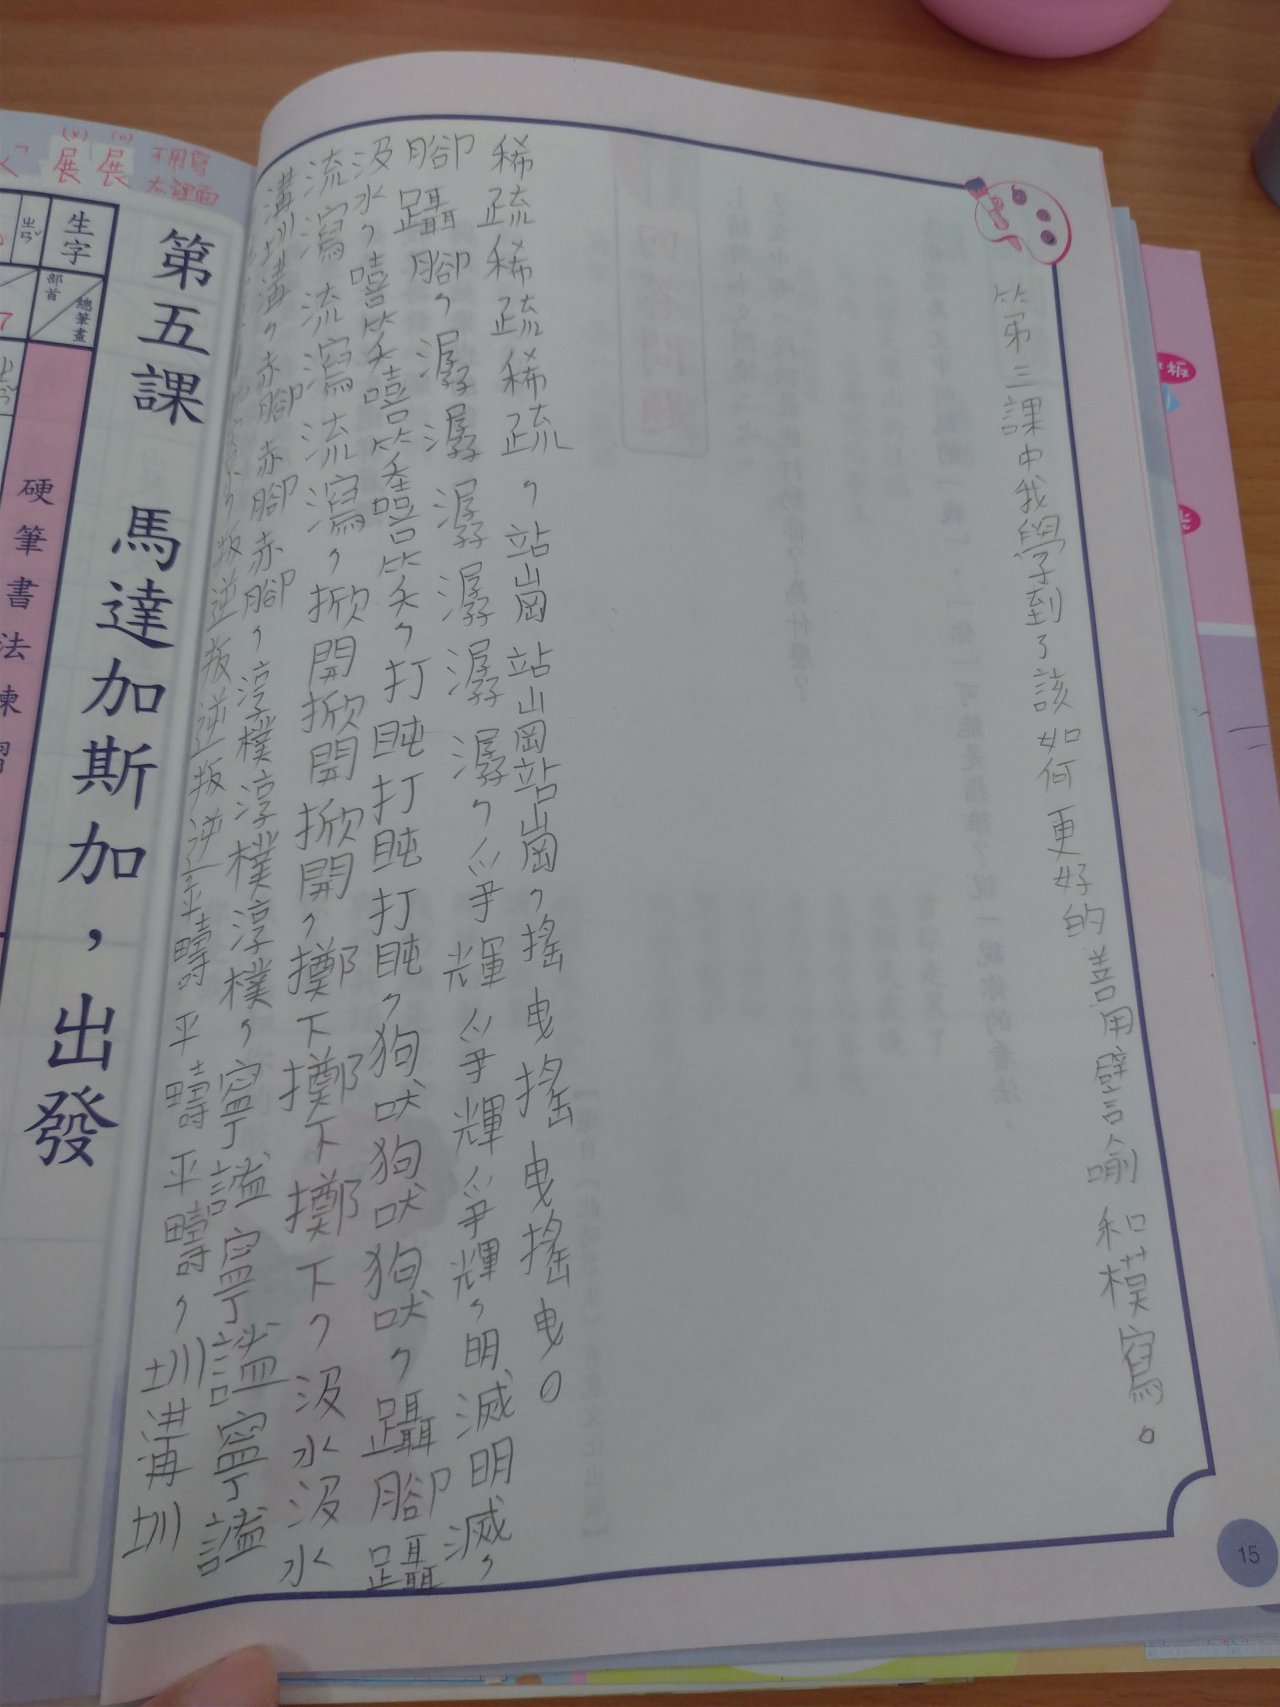 第三課中我學到了該如何更好的善用譬喻和模寫。
稀疏稀疏稀疏，站崗站崗站崗，搖曳搖曳搖曳。
腳躡腳，潺潺潺潺潺潺，爭輝爭輝爭輝，明滅明滅，
汲水，嘻笑嘻笑嘻笑，打盹打盹打盹，狗吠狗吠狗吠，躡腳躡
流瀉流瀉流瀉，掀開掀開掀開，擲下擲下擲下，汲水汲水
溝圳溝，赤腳赤腳赤腳，淳樸淳樸淳樸，寧謐寧謐寧謐
叛逆叛逆叛逆，平疇平疇平疇，圳溝圳
15
(x) (o)
展 展
第五課 馬達加斯加，出發
生字
部首 總筆畫
硬筆書法練習